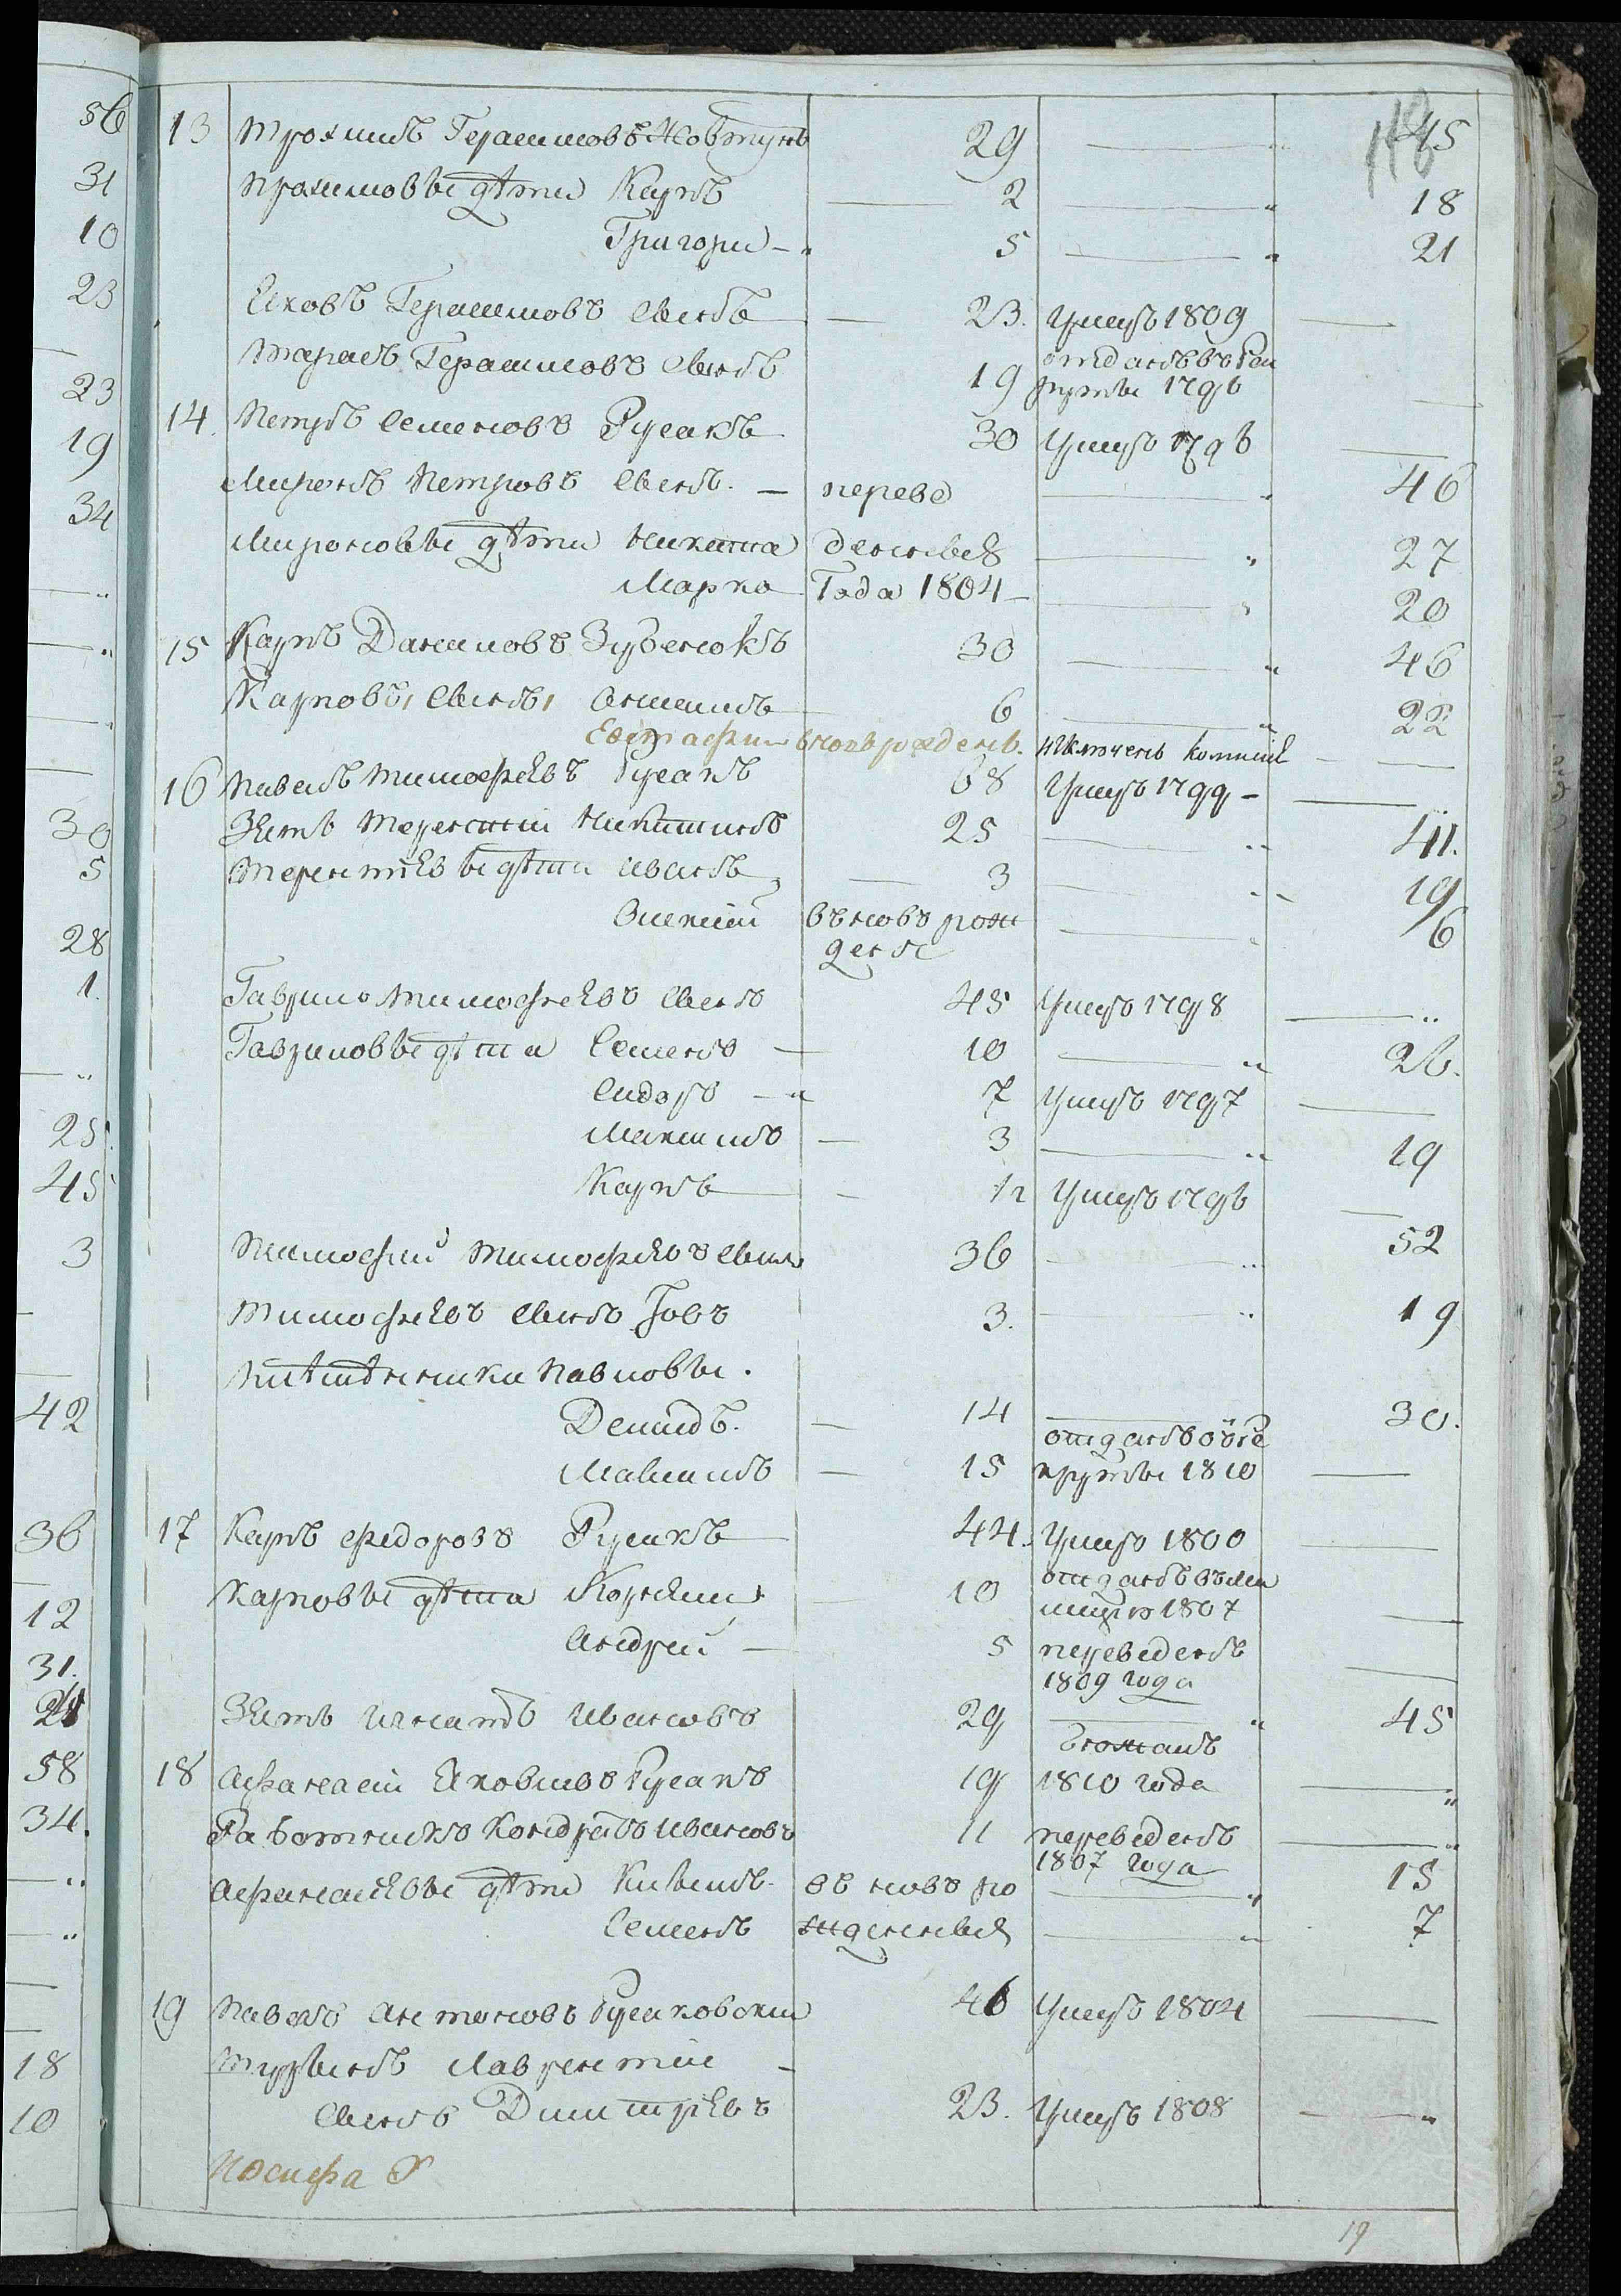 56
31
10
23
23
19
34
30
5
28
1.
25.
45
3
42
36
12
31.
21
58
34.
18
10
118
13 Трохимъ Герасимовъ Жовтунъ 29 45
Трохимовы дѣти Карпъ 2 18
Григори 5 21
Яковъ Герасимовъ Сынъ 23. Умеръ 1809
Тарасъ Герасимовъ Сынъ 19 отданъ въ рекруты 1796
14. Петръ Семеновъ Русакъ 30 Умеръ 1796
Миронъ Петровъ Сынъ. переве 46
Мироновы дѣти Никита денные 27
Марко Года 1804 20
15 Карпъ Даниловъ Зубенокъ 30 46
Карповы Сыны Анисимъ 6 22
Евстафии вновь рожденъ. Включенъ Комисіе
16 Павелъ Тимофѣевъ Русакъ 68 Умеръ 1799
Зять Терентій Никитинъ 25 41.
Терентіевы дѣти Иванъ 3 19
Олексій въ новъ рож 6
денъ
Гаврило Тимофѣевъ Сынъ 45 Умеръ 1798
Гавриловы дѣти Семенъ 10 26.
Сидоръ 7 Умеръ 1797
Максимъ 3 19
Карпъ 12 Умеръ 1796
Тимофій Тимофѣевъ Сынъ 36 52
Тимофѣевъ Сынъ Іовъ 3. 19
Племѣнники Павловы.
Демидъ. 14 30.
отданъ в ре
Максимъ 15 круты 1810
17 Карпъ Федоровъ Русакъ 44. Умеръ 1800
отданъ въ ми
Карповы дѣти Корнѣи 10 лицію 1807
Андрей 5 переведенъ
1809 года
Зять Игнатъ Ивановъ 29 45
бежалъ
18 Афанасій Яковлевъ Русакъ 19 1810 года
Работникъ Кондратъ Ивановъ 11 переведенъ
1807 года
Афанасіевы дѣти Климъ. въ новъ ро 15
Семенъ жденные 7
19 Павелъ Антоновъ Русаковский 46 Умеръ 1804
Лаврентій
Сынъ Дмитріевъ 23. Умеръ 1808
Иосифа
19